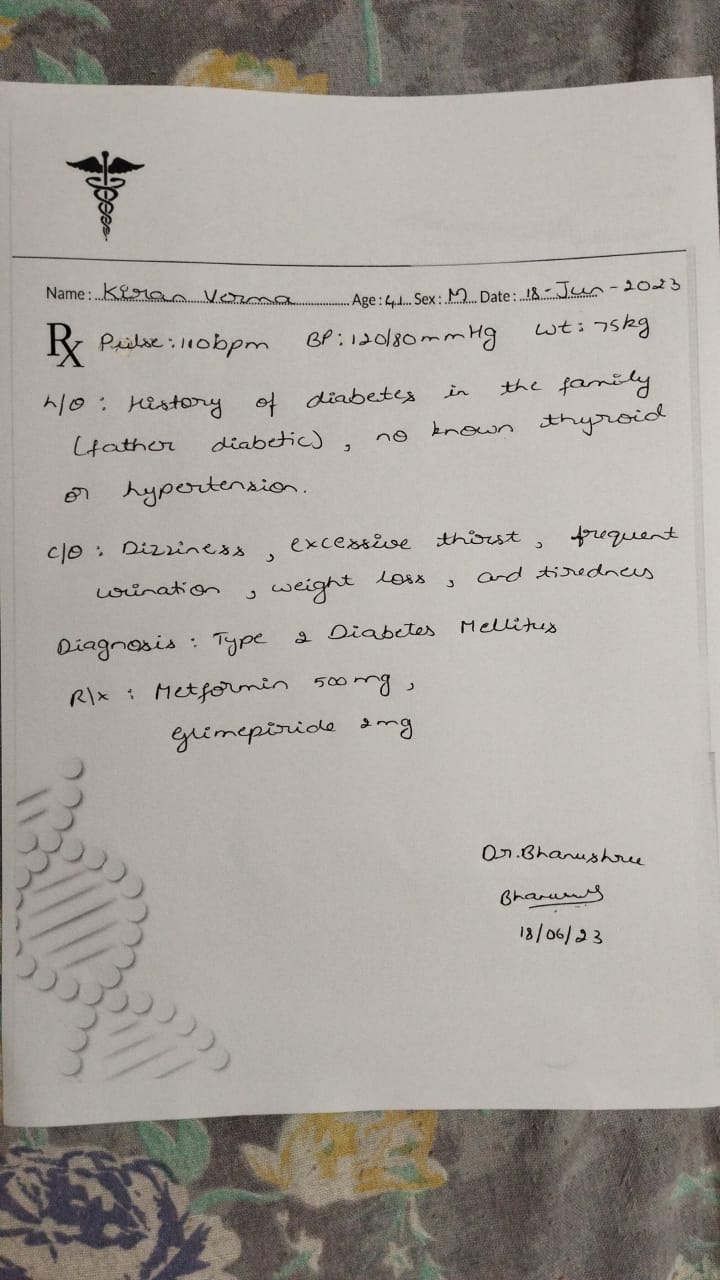 Name: Kiran Verma Age: 41 Sex: M Date: 18-Jun-2023
Rx Pulse: 110bpm BP: 120/80mmHg Wt: 75kg
h/o: History of diabetes in the family
(father diabetic), no known thyroid
or hypertension.
c/o: Dizziness, excessive thirst, frequent
urination, weight loss, and tiredness
Diagnosis: Type 2 Diabetes Mellitus
R/x: Metformin 500mg,
Glimepiride 2mg
Dr. Bhanushree
18/06/23